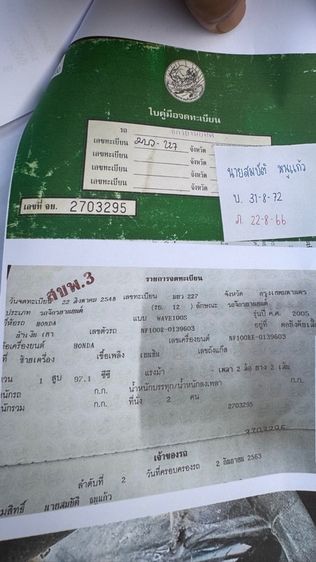 ใบคู่มือจดทะเบียน
รถ จักรยานยนต์
เลขทะเบียน มบว - 227 จังหวัด
เลขทะเบียน จังหวัด
เลขทะเบียน จังหวัด
เลขทะเบียน จังหวัด
เลขที่ จย. 2703295
นายสมบัติ หนูแก้ว
บ. 31-8-72
ภ. 22-8-66
สขพ.3
รายการจดทะเบียน
วันจดทะเบียน 22 สิงหาคม 2548 เลขทะเบียน 227 จังหวัด กรุงเทพมหานคร
ประเภท รถจักรยานยนต์ (รย. 12 ) ลักษณะ รถจักรยานยนต์
HONDA แบบ WAVE100S รุ่นปี ค.ศ. 2005
เลขตัวรถ NF100R-0139603 อยู่ที่
เครื่องยนต์ HONDA เลขเครื่องยนต์ NF100RE-0139603
เชื้อเพลิง เบนซิน เลขถังแก๊ส
1 สูบ 97.1 ซีซี แรงม้า - เพลา 2 ล้อ ยาง 2 เส้น
ก.ก. น้ำหนักบรรทุก/น้ำหนักลงเพลา ก.ก.
ก.ก. ที่นั่ง 2 คน
2703295
เจ้าของรถ
ลำดับที่ 2 วันที่ครอบครองรถ 2563